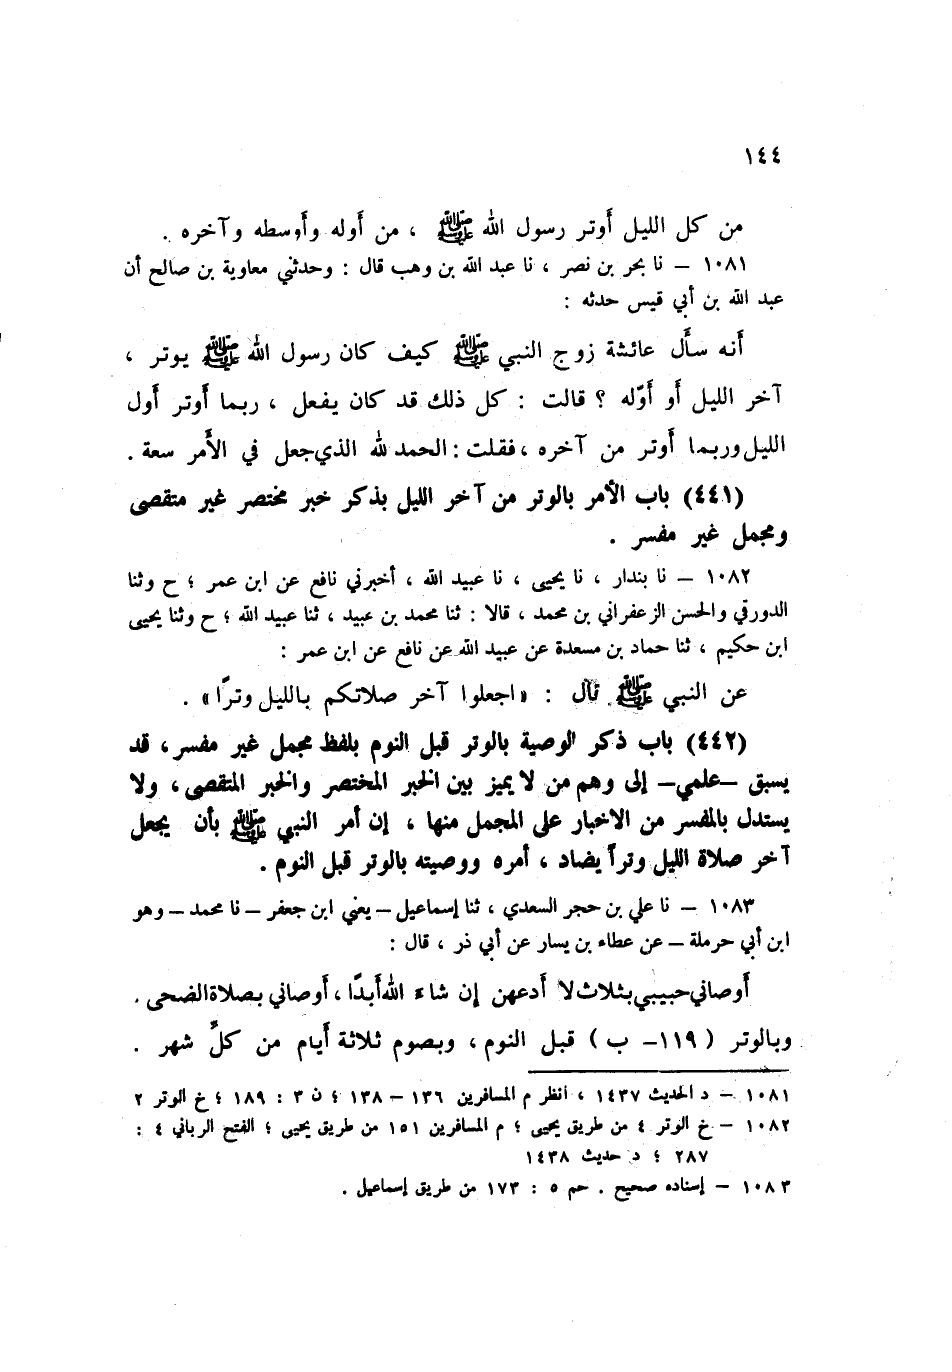 ١٤٤
من كل الليل أوتر رسول الله ﷺ ، من أوله وأوسطه وآخره .
١٠٨١ – نا بحر بن نصر ، نا عبد الله بن وهب قال : وحدثني معاوية بن صالح أن
عبد الله بن أبي قيس حدثه :
أنه سأل عائشة زوج النبي ﷺ كيف كان رسول الله ﷺ يوتر ،
آخر الليل أو أوّله ؟ قالت : كل ذلك قد كان يفعل ، ربما أوتر أول
الليل وربما أوتر من آخره ، فقلت : الحمد لله الذي جعل في الأمر سعة .
(٤٤١) باب الأمر بالوتر من آخر الليل بذكر خبر مختصر غير متقصى
ومجمل غير مفسر .
١٠٨٢ – نا بندار ، نا يحيى ، نا عبيد الله ، أخبرني نافع عن ابن عمر ؛ ح وثنا
الدورقي والحسن الزعفراني بن محمد ، قالا : ثنا محمد بن عبيد ، ثنا عبيد الله ؛ ح وثنا يحيى
ابن حكيم ، ثنا حماد بن مسعدة عن عبيد الله عن نافع عن ابن عمر :
عن النبي ﷺ قال : «اجعلوا آخر صلاتكم بالليل وترًا» .
(٤٤٢) باب ذكر الوصية بالوتر قبل النوم بلفظ مجمل غير مفسر، قد
يسبق –علمي– إلى وهم من لا يميز بين الخبر المختصر والخبر المتقصى، ولا
يستدل بالمفسر من الاخبار على المجمل منها ، إن أمر النبي ﷺ بأن يجعل
آخر صلاة الليل وتراً يضاد ، أمره ووصيته بالوتر قبل النوم .
١٠٨٣ – نا علي بن حجر السعدي ، ثنا إسماعيل – يعني ابن جعفر – نا محمد – وهو
ابن أبي حرملة – عن عطاء بن يسار عن أبي ذر ، قال :
أوصاني حبيبي بثلاث لا أدعهن إن شاء الله أبدًا ، أوصاني بصلاة الضحى .
وبالوتر ( ١١٩– ب ) قبل النوم ، وبصوم ثلاثة أيام من كلِّ شهر .
١٠٨١ – د الحديث ١٤٣٧ ، انظر م المسافرين ١٣٦ – ١٣٨ ؛ ن ٣ : ١٨٩ ؛ خ الوتر ٢
١٠٨٢ – خ الوتر ٤ من طريق يحيى ؛ م المسافرين ١٥١ من طريق يحيى ؛ الفتح الرباني ٤ :
٢٨٧ ؛ د حديث ١٤٣٨
١٠٨٣ – إسناده صحيح . حم ٥ : ١٧٣ من طريق إسماعيل .